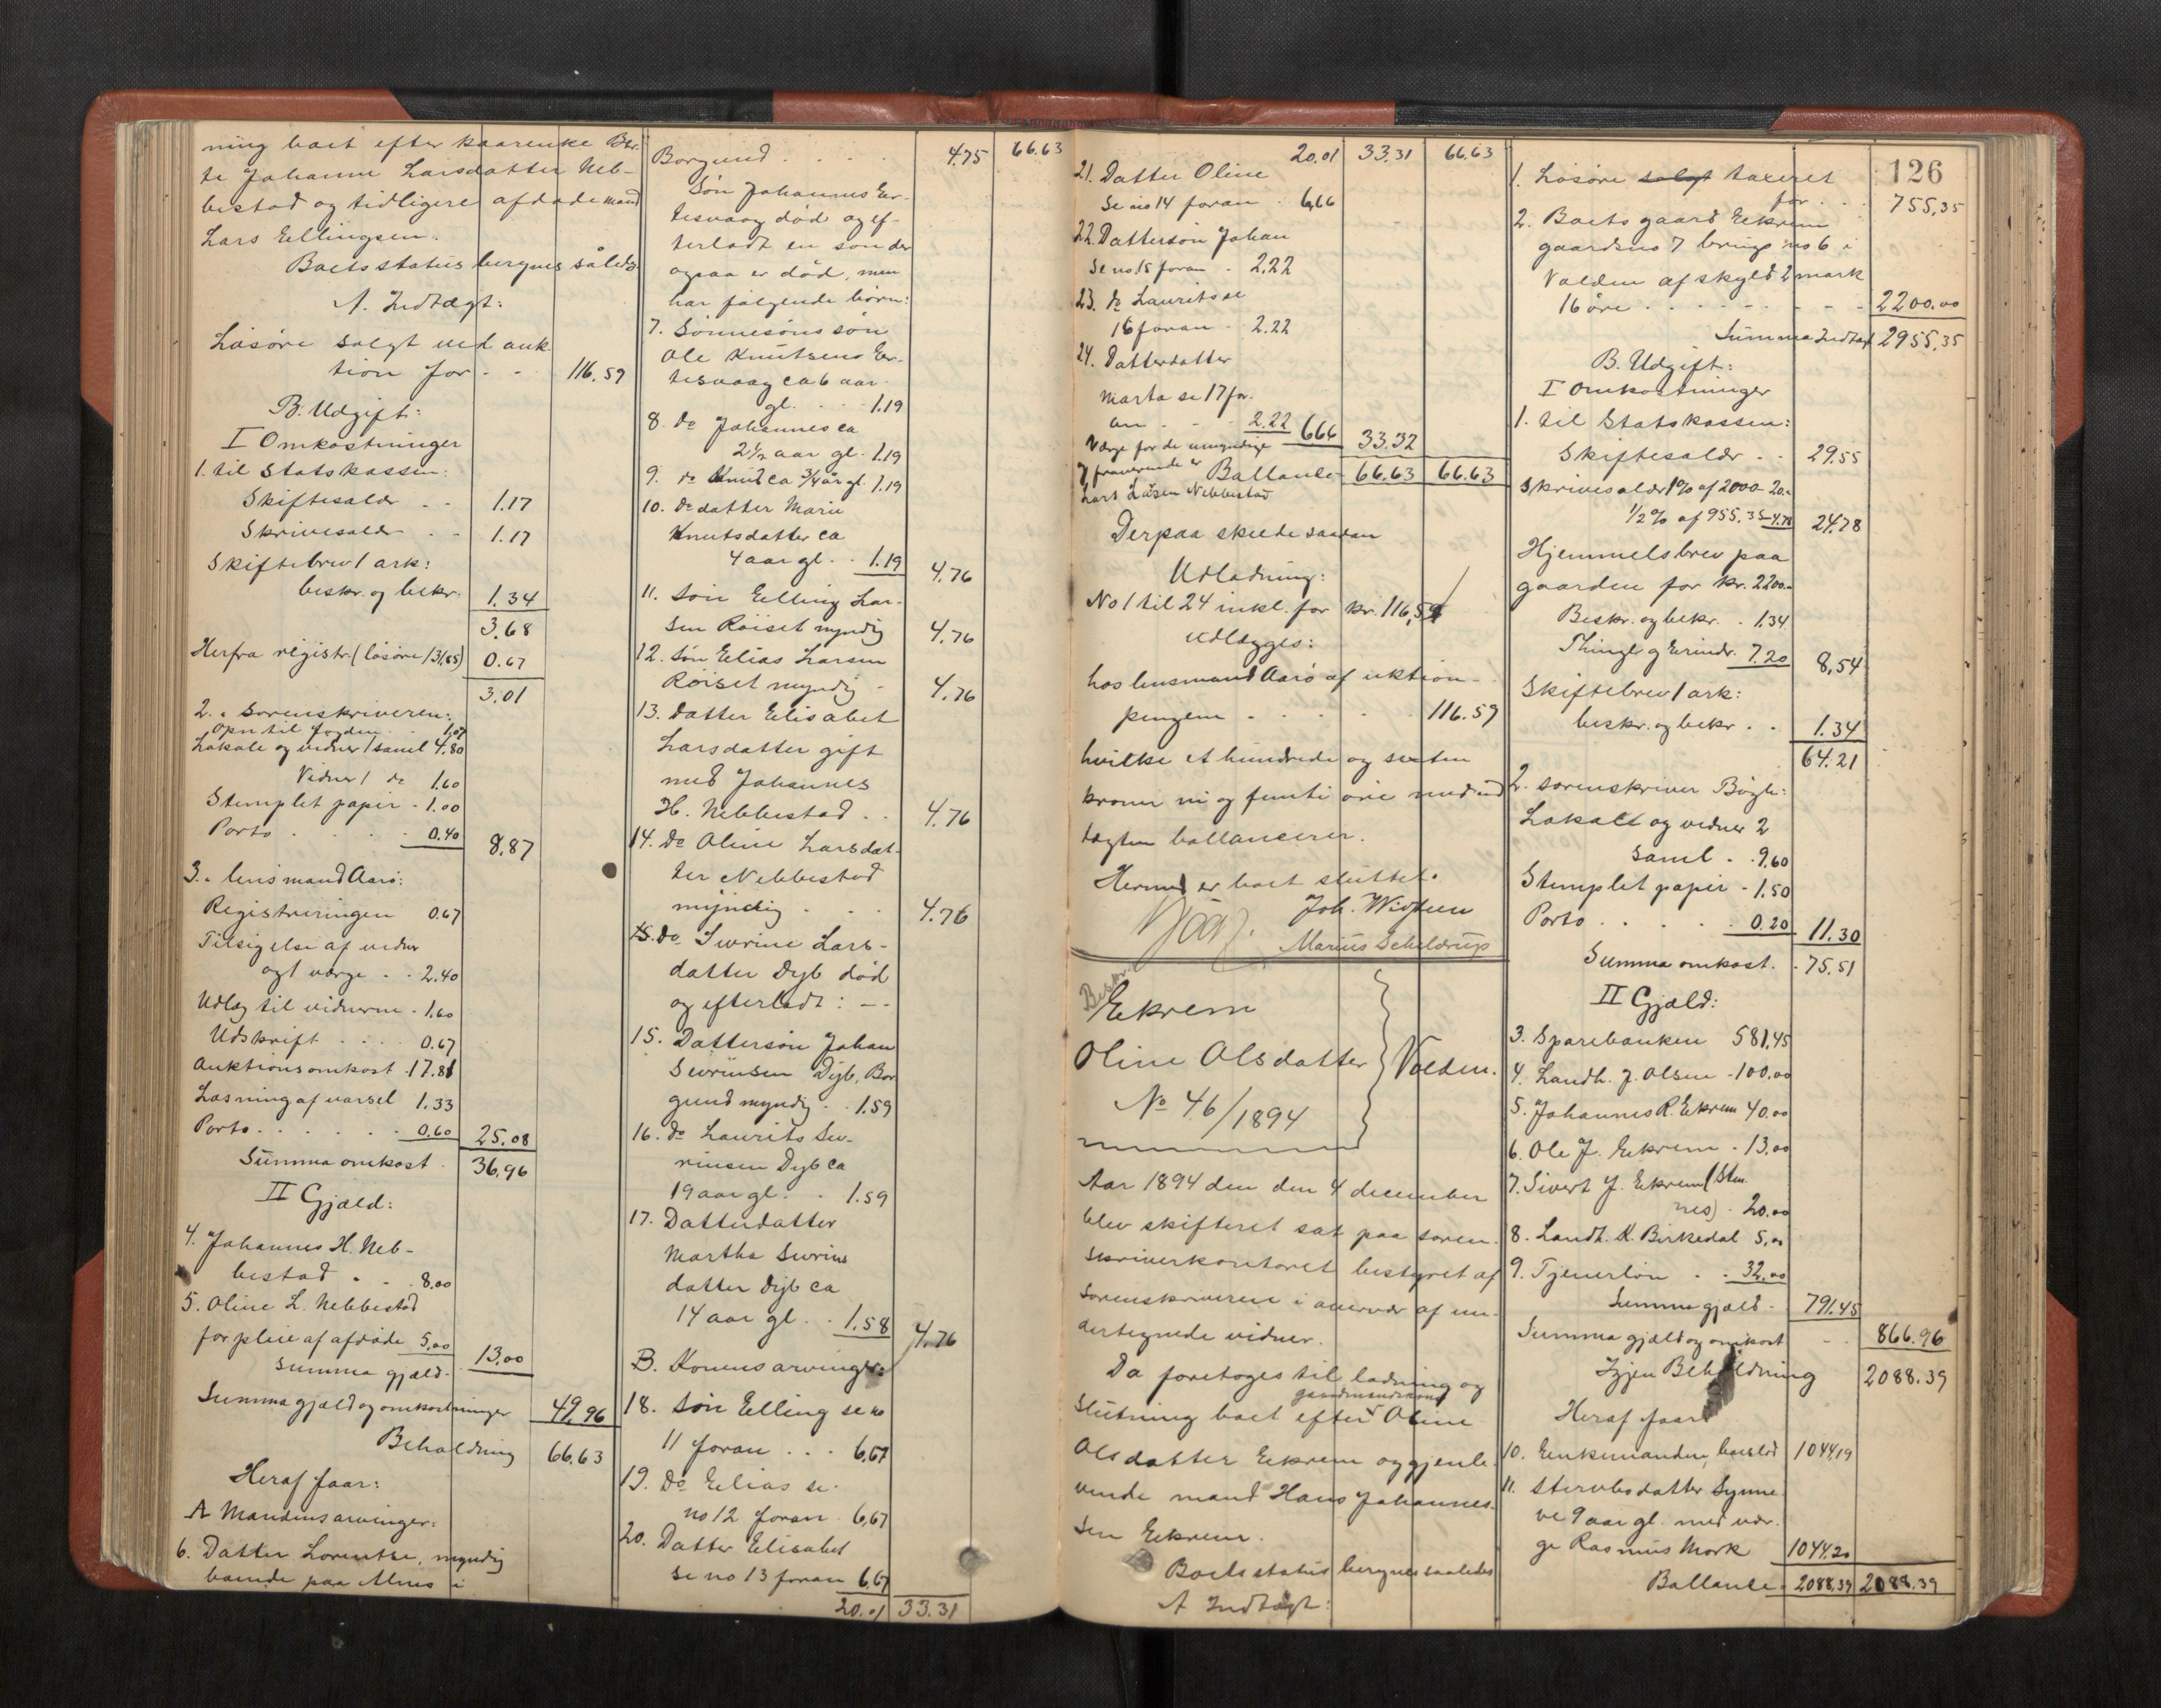 ning boet efter kaarenke Ber-
te Johanne Larsdatter Neb-
bestad og tidligere afdøde mand
Lars Ellingsen.
Boets status beregnes således
A. Indtægt:
Løsøre solgt ved auk-
tion for - - 116.59
B. Udgift:
I Omkostninger
1. til Statskassen:
Skiftesalær . . 1.17
Skrivesalær . . 1.17
Skiftebrev 1 ark:
beskr. og bekr. 1.34
3.68
Herfra registr. (løsøre 131,85) 0.67
3.01
2. " Sorenskriveren:
Opn til fogden . . 1,07
Lokale og vidner 1 saml 4.80
Vidner 1 do 1.60
Stemplet papir - 1.00
Porto . . . . 0.40 8.87
3. " lensmand Aarö:
Registreringen 0.67
Tilsigelse af vidner
og 1 værge . . 2.40
Udlæg til vidnerne - 1.60
Udskrift . . . . 0.67
Auktionsomkost. 17.81
Læsning af varsel 1.33
Porto . . . . . . 0.60 25.08
Summa omkost. 36.96
II Gjæld:
4. Johannes H. Neb-
bestad . . . 8.00
5. Oline L. Nebbestad
for pleie af afdøde 5,00 13.00
Summa gjæld.
Summa gjæld og omkostninger 49.96
Beholdning 66.63
Heraf faar:
A Mandens arvinger:
6. Datter Lorentse, myndig
boende paa Alnes i
Borgund . . . . 4.75 66.63
Søn Johannes Er-
tesvaag død og ef-
terladt en søn der
ogsaa er død, men
har følgende børn:
7. Sønnesøns søn
Ole Knutsens Er-
tesvaag ca 6 aar
gl. . . . 1.19
8. do Johannes ca
2½ aar gl. 1.19
9. do Knut ca ¾ år gl. 1.19
10. do datter Marie
Knutsdatter ca
4 aar gl. . . 1.19 4.76
11. Søn Elling Lar-
sen Röiset myndig 4.76
12. Søn Elias Larsen
Röiset myndig - 4.76
13. Datter Elisabet
Larsdatter gift
med Johannes
H. Nebbestad . . 4.76
14. do Oline Larsdat-
ter Nebbestad
myndig . . . 4.76
15. do Sevrine Lars-
datter Dyb død
og efterladt: --
15. Dattersøn Johan
Sevrinsen Dyb, Bor
gund myndig . . 1.59
16. do Laurits Sev-
rinsen Dyb ca
19 aar gl. . 1.59
17. Datterdatter
Martha Sevrins
datter Dyb ca
14 aar gl. . . 1.58 4.76
B. Konens arvinger:
18. Søn Elling se no
11 foran . . . 6,67
19. Do Elias se
no 12 foran . 6,67
20. Datter Elisabet
se no 13 foran 6,67
20.01 33.31
20.01 33.31 66.63
21. Datter Oline
se no 14 foran . 6,66
22. Dattersøn Johan
se no 15 foran . 2,22
23. do Laurits se
16 foran . 2.22
24. Datterdatter
Marta se 17 for-
an . . . 2.22 6.66 33.32
Værge for de umyndige
og fraværende er Ballance 66.63 66.63
Lars Larsen Nebbestad
Derpaa skeede saadan
Udlodning:
No 1 til 24 inkl. for kr. 116,59
udlægges:
hos lensmand Aarö af auktion-
pengene . . . . 116.59
hvilke et hundrede og sexten
kroner ni og femti øre med ind
tægten ballancerer.
Hermed er boet sluttet.
Joh. Widsteen
Marius Scheldrup
Beskr.
Ekrem
Oline Olsdatter Volden.
No 46/1894
Aar 1894 den den 4 december
blev skifteret sat paa soren-
skriverkontoret bestyret af
sorenskriveren i overvær af un-
dertegnede vidner.
Da foretoges til lodning og
Slutning boet efter gaardmandskone Oline
Olsdatter Ekrem og gjenle-
vende mand Hans Johannes-
sen Ekrem.
Boets status beregnes saaledes
A Indtægt:
126
1. Løsøre solgt taxeret
for . . . 755,35
2. Boets gaard Ekrem
gaardsno 7 brugs no 6 i
Volden af skyld 2 mark
16 øre . . . . . . 2200.00
Summa Indtægt 2955,35
B. Udgift:
I Omkostninger
1. til Statskassen:
Skiftesalær . . 29.55
Skrivesalær 1% af 2000 - 20.-
½% af 955.35 - 4.78 24.78
Hjemmelsbrev paa
gaarden for kr. 2200.-
Beskr. og bekr. . 1.34
Thingl. og Erindr. 7.20 8,54
Skiftebrev 1 ark:
beskr. og bekr . . 1.34
64.21
2. sorenskriver Bögh:
Lokale og vidner 2
saml . . 9,60
Stemplet papir - 1.50
Porto . . . . . 0.20 11.30
Summa omkost. . 75.51
II Gjæld:
3. Sparebanken 581,45
4. Landh. J. Olsen - 100.00
5. Johannes R. Ekrem 40.00
6. Ole J. Ekrem . 13.00
7. Sivert J. Ekrem (Sten-
nes) . 20.00
8. Landh. K. Birkedal 5,00
9. Tjenerløn . . 32,00
Summa gjæld . 791.45
Summa gjæld og omkost . . 866.96
Igjen Beholdning 2088.39
Heraf faar
10. Enkemanden, boeslod 1044,19
11. Stervbsdatter Synne-
ve 9 aar gl. med vær-
ge Rasmus Mork 1044.20
Ballance . 2088.39 2088.39